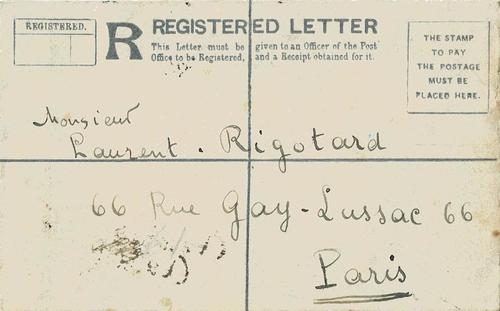 REGISTERED.
R
REGISTERED LETTER
This Letter must be given to an Officer of the Post
Office to be Registered, and a Receipt obtained for it.
THE STAMP
TO PAY
THE POSTAGE
MUST BE
PLACED HERE.
Monsieur
Laurent. Rigotard
66 Rue Gay-Lussac 66
Paris